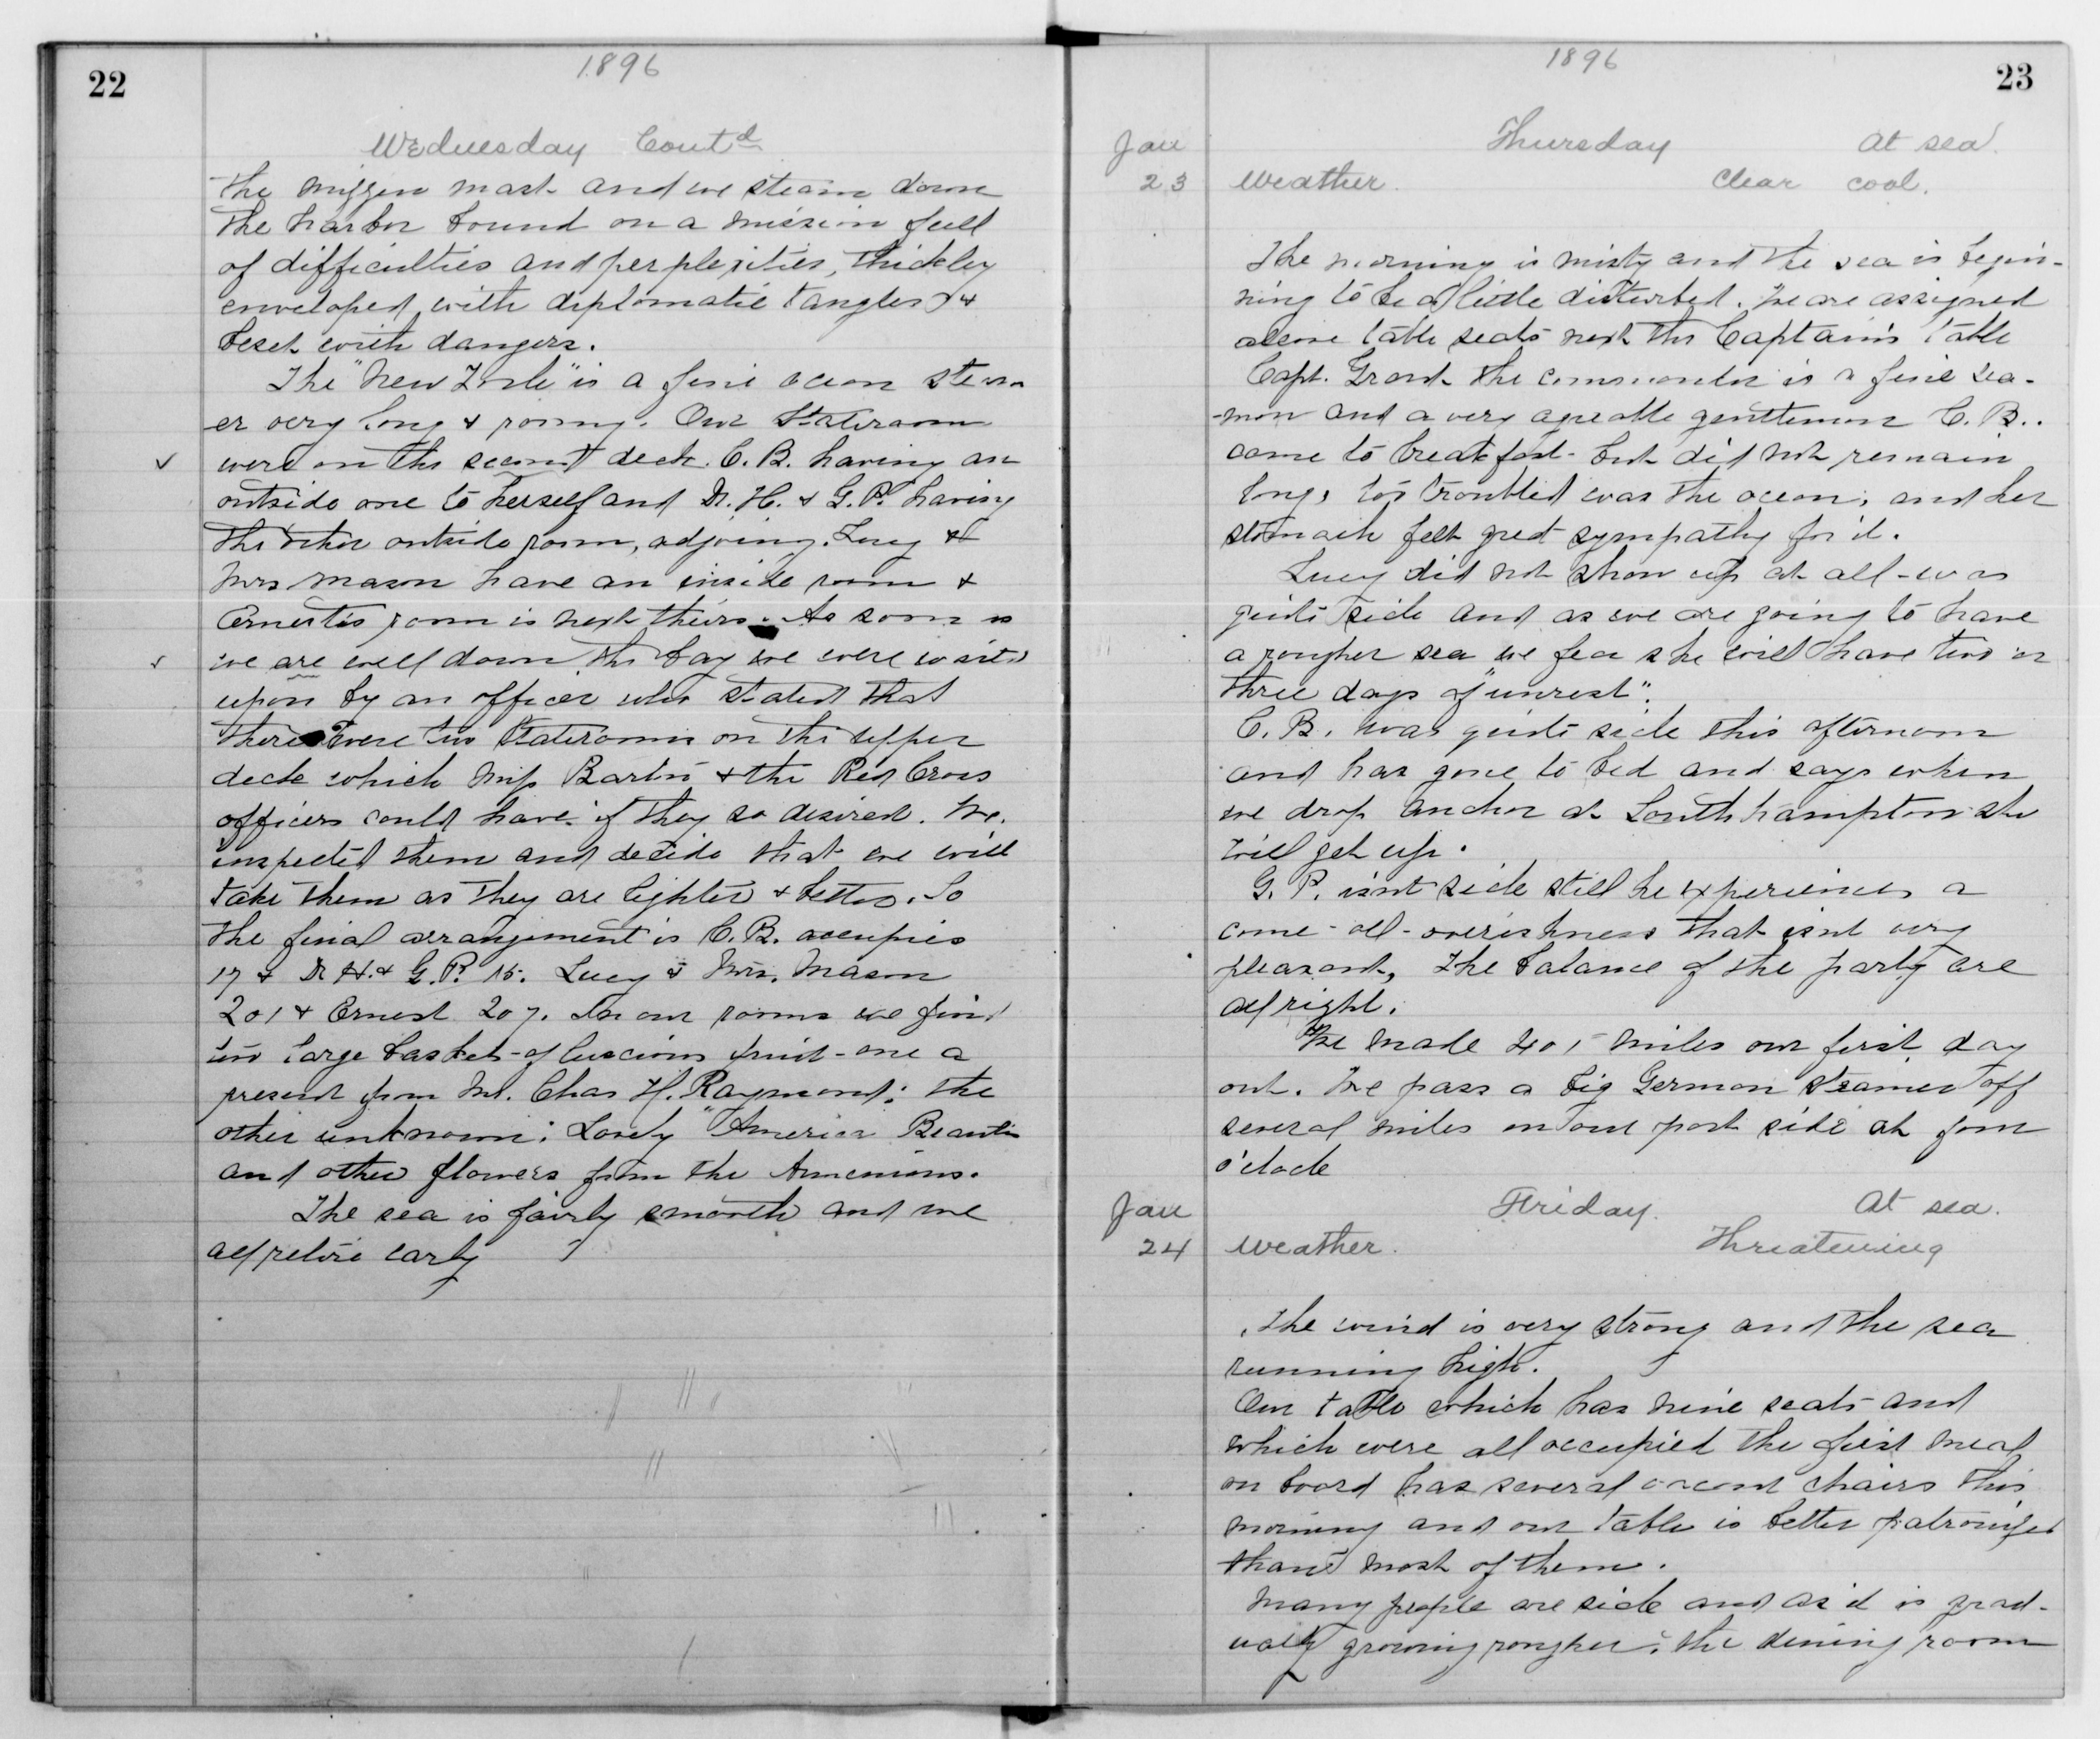 22
1896
Wednesday Cont'd
the mizzen mast and we steam down
the harbor bound on a mission full
of difficulties and perplexities, thickly
enveloped with diplomatic tangles &
beset with dangers.
The "New York" is a fine ocean steam
-er very long & roomy. Our Staterooms
were on the second deck. C. B. having an
outside one to herself and Dr. H. & G. P. having
the other outside room, adjoining. Lucy &
Mrs Mason have an inside room &
Ernestis room is next theirs. As soon as
we are well down the bay we were waited
upon by an officer who stated that
there were two Staterooms on the upper
deck which Miss Barton & the Red Cross
officers could have if they so desired. We
inspected them and decide that we will
take them as they are lighter & better. So
the final arrangement is C. B. occupies
17 & Dr H. & G. P. 15. Lucy & Mrs. Mason
201 & Ernest 207. In our rooms we find
two large baskets of luscious fruit - one a
present from Mr. Chas H. Raymond; the
other unknown; Lovely "America Beauties
and other flowers from the Armenians.
The sea is fairly smooth and we
all retire early
1896
23
Jan Thursday At sea.
23 Weather. Clear cool.
The morning is misty and the sea is begin-
ning to be a little disturbed. We are assigned
table seats next the Captain's table
Capt. Grant the commander is a fine sea-
-man and a very agreable gentleman C. B..
came to breakfast - but did not remain
long, too troubled was the ocean, and her
stomach felt great sympathy for it.
Lucy did not show up at all - was
quite sick and as we are going to have
a rougher sea we fear she will have two or
three days of "unrest".
C. B. was quite sick this afternoon
and has gone to bed and says when
we drop anchor at Southhampton she
will get up.
G. P. isn't sick still he experiences a
come-all-overishness that isnt very
pleasant, The balance of the party are
all right.
We made 401 miles our first day
out. We pass a big German steamer off
several miles on our port side at four
o'clock
Jan Friday. At sea.
24 Weather. Threatening
The wind is very strong and the sea
running high.
Our table which has nine seats and
which were all occupied the first meal
on board has several vacant chairs this
morning and our table is better patronized
than most of them.
Many people are sick and as it is grad-
ually growing rougher, the dining room